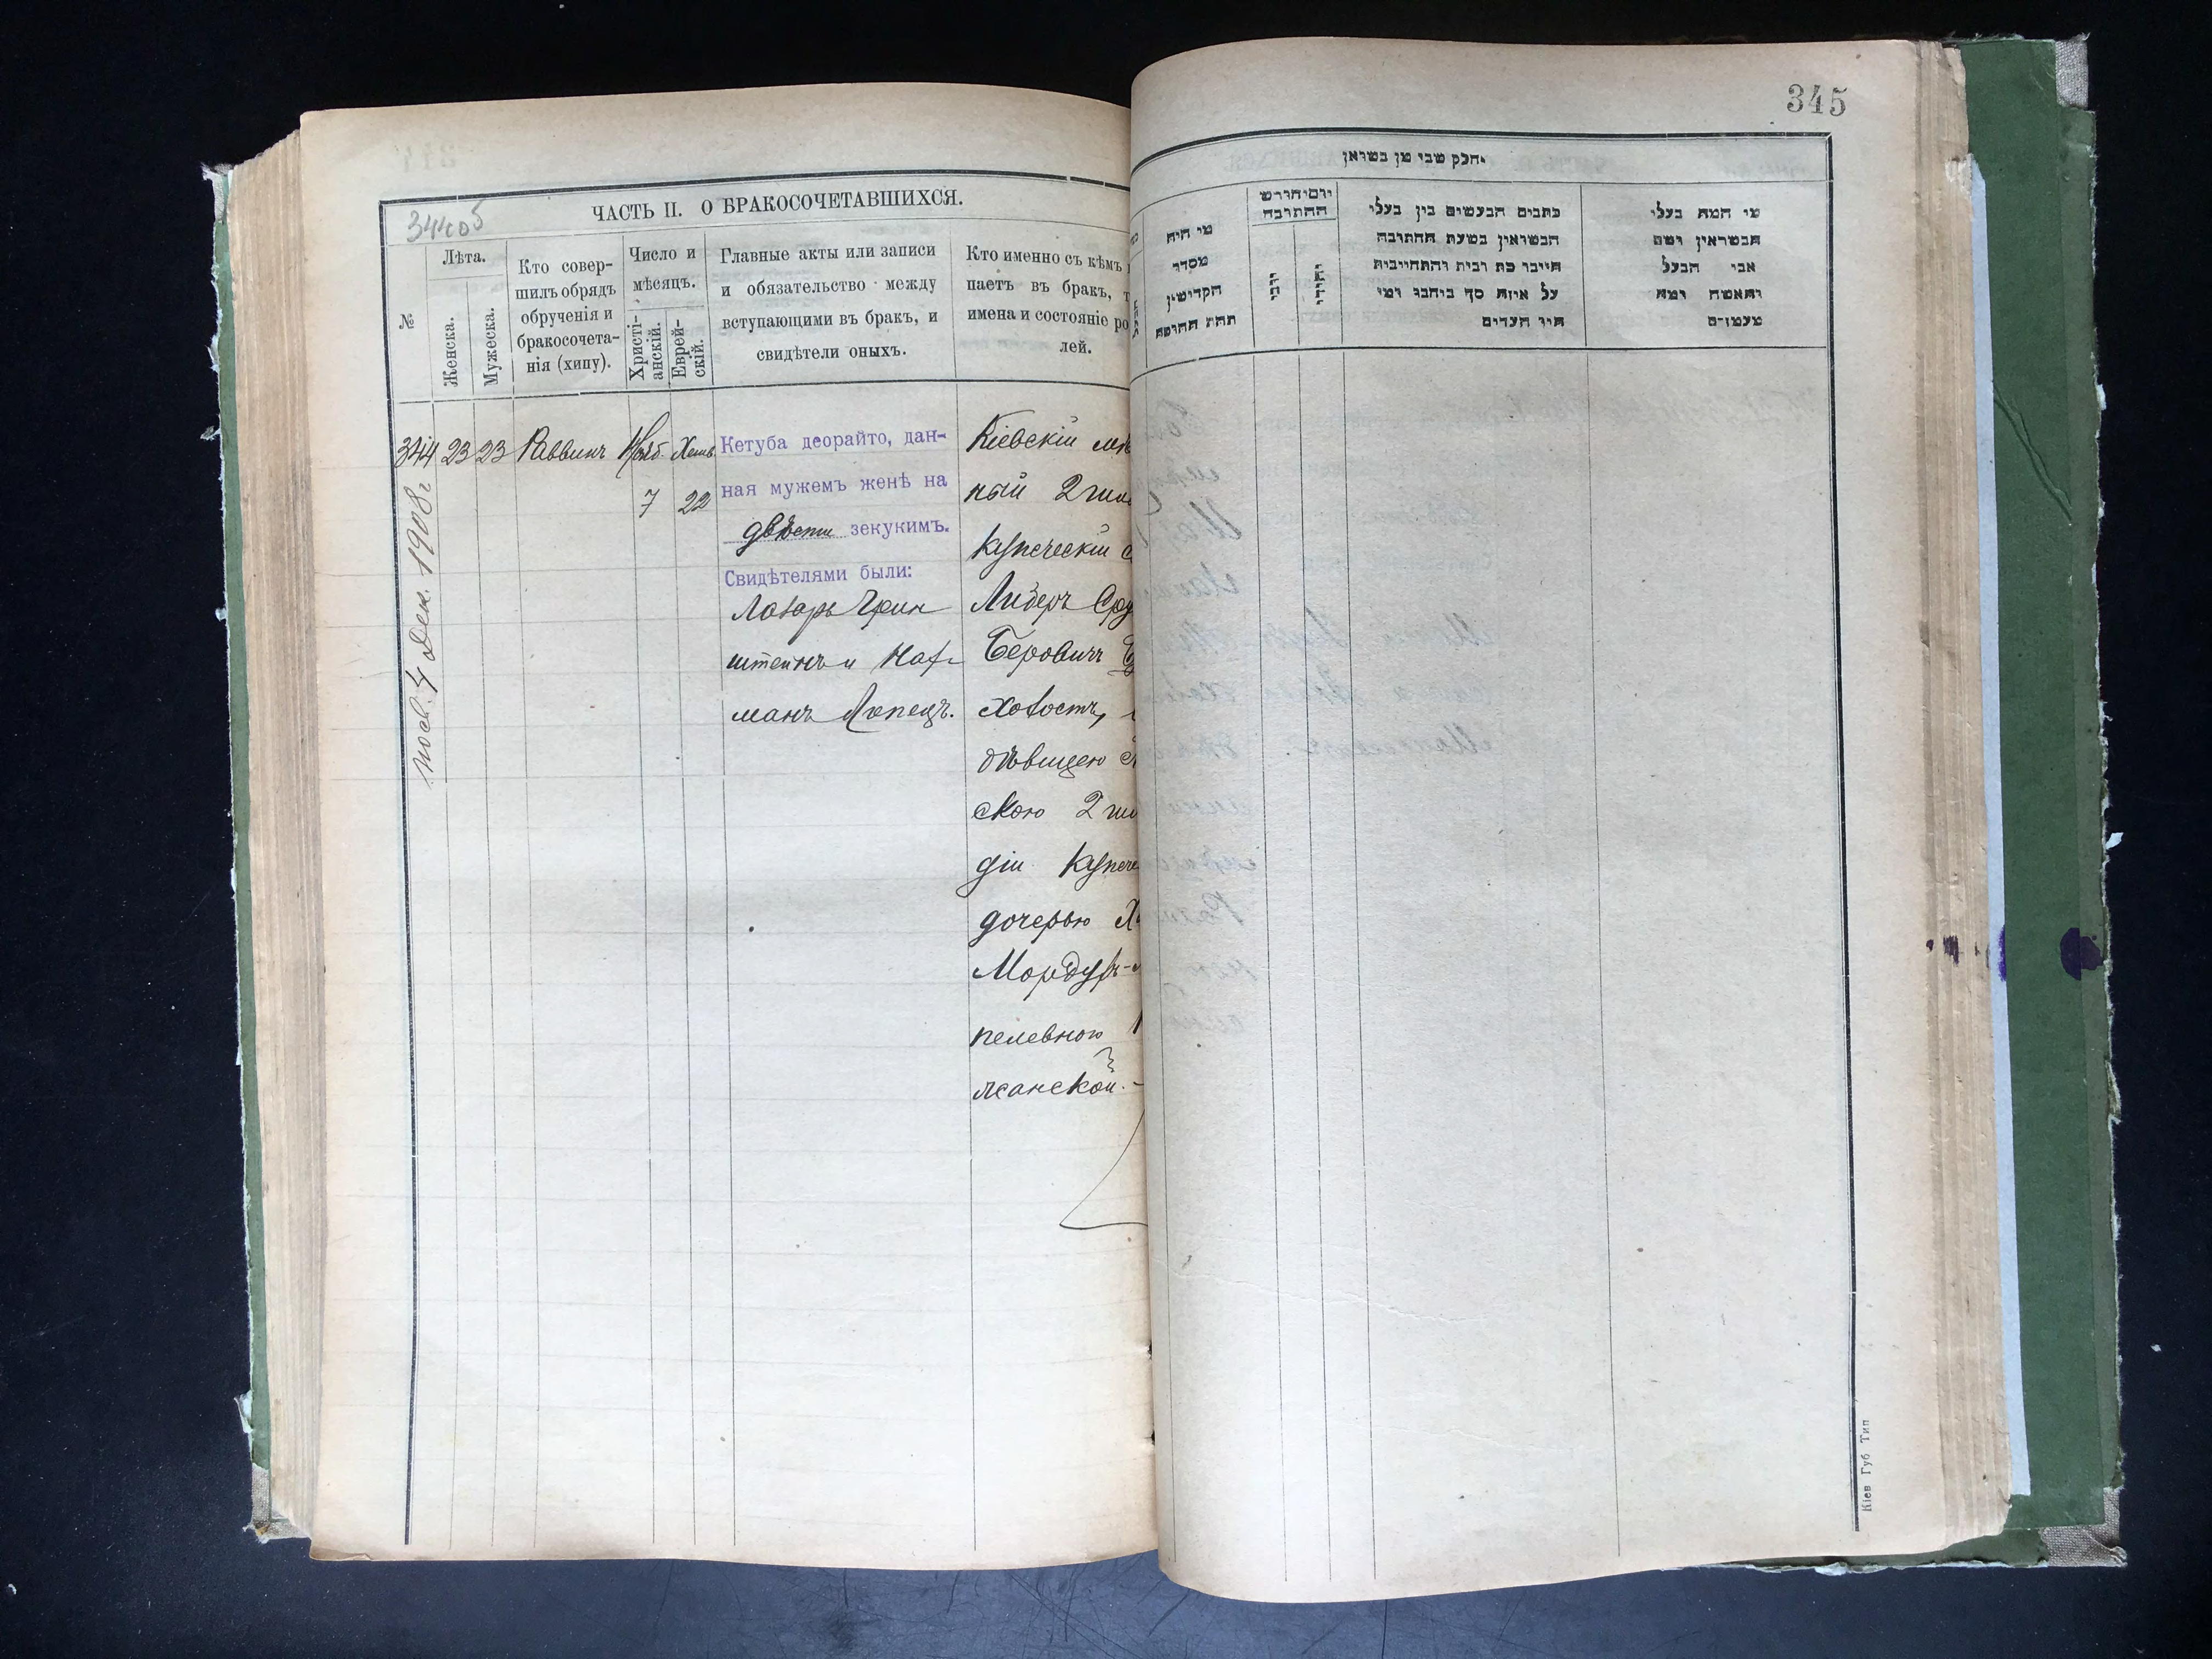 344об
ЧАСТЬ II. О БРАКОСОЧЕТАВШИХСЯ.
№
Лѣта.
Женска.
Мужеска.
Кто совер-
шилъ обрядъ
обрученія и
бракосочета-
нія (хипу).
Число и
мѣсяцъ.
Христі-
анскій.
Еврей-
скій.
Главные акты или записи
и обязательство между
вступающими въ бракъ, и
свидѣтели оныхъ.
Кто именно съ кѣмъ
паетъ въ бракъ,
имена и состояніе ро
лей.
344 23 23 Раввинъ Нояб. Хешв.
7 22
4 дек. 1908 г
Кетуба деорайто, дан-
ная мужемъ женѣ на
двѣсти зекукимъ.
Свидѣтелями были:
Лазарь Грин
штейнъ и Нах-
манъ Лопецъ.
Кіевскій
ный 2
купеческій
Либеръ Сру
Беровичъ
хвостъ,
дѣвицею
скою 2
діи купече
дочерью
Мордухъ-
пелевною
жанской.-
345
חלק שני מן נשואין
מי היה
מסדר
הקדושין
תחת החופה
יום וחודש
החתונה
נוצרי
יהודי
כתבים הנעשים בין בעלי
הנשואין בשעת החתונה
חייבו כת רבית והתחייבות
על איזה סך ביחבו ומי
היו העדים
מי המה בעלי
הנשואין ושם
אבי הבעל
והאשה ומה
מעמדם
Кіев Губ Тип